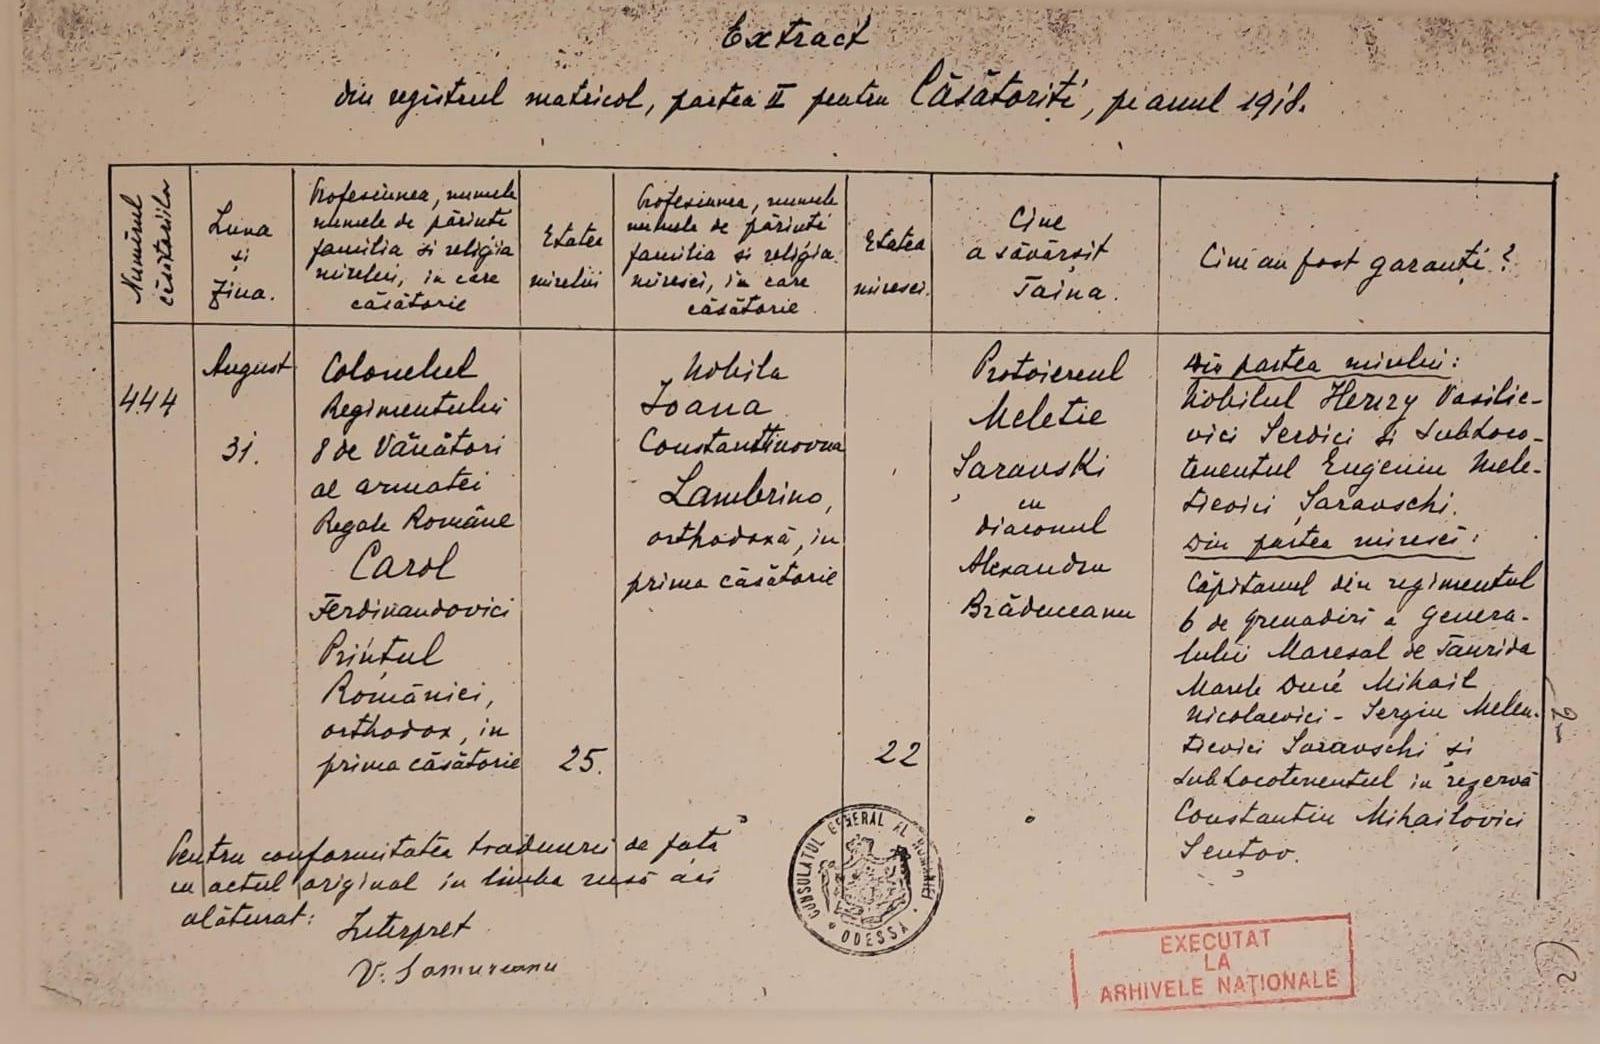 Extract
din registrul matricol, partea II pentru Căsătoriți, pe anul 1918.
Numărul
căsătoriilor
Luna
și
Ziua.
Profesiunea, numele
numele de părinte
familia și religia
mirelui, in care
căsătorie
Etatea
mirelui
Profesiunea, numele
numele de părinte
familia si religia
miresei, in care
căsătorie
Etatea
miresei.
Cine
a săvârșit
Taina.
Cine au fost garanți?
444
August
31.
Colonelul
Regimentului
8 de Vânători
al armatei
Regale Române
Carol
Ferdinandovici
Prințul
României,
orthodox, in
prima căsătorie
25.
Nobila
Ioana
Constantinovna
Lambrino,
orthodoxă, in
prima căsătorie
22
Protoiereul
Meletie
Șaravski
cu
diaconul
Alexandru
Brăduceanu
Din partea mirelui:
Nobilul Henry Vasilie-
vici Serdici și SubLoco-
tenentul Eugeniu Mele-
tievici Șaravschi.
Din partea miresei:
Căpitanul din regimentul
6 de grenadiri a Genera-
lului Mareșal de Taurida
Marele Duce Mihail
Nicolaevici - Sergiu Melen-
tievici Șaravschi și
subLocotenentul in rezervă
Constantin Mihailovici
Șentov.
Pentru conformitatea traducerii de față
cu actul original in limba rusă aci
alăturat:
Interpret
V. Samureanu
CONSULATUL GENERAL AL ROMÂNIEI
ODESSA
EXECUTAT
LA
ARHIVELE NAȚIONALE
2
2